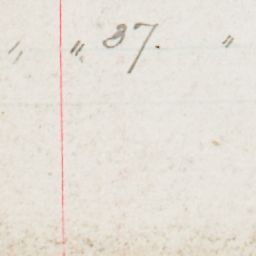 " " 37. "